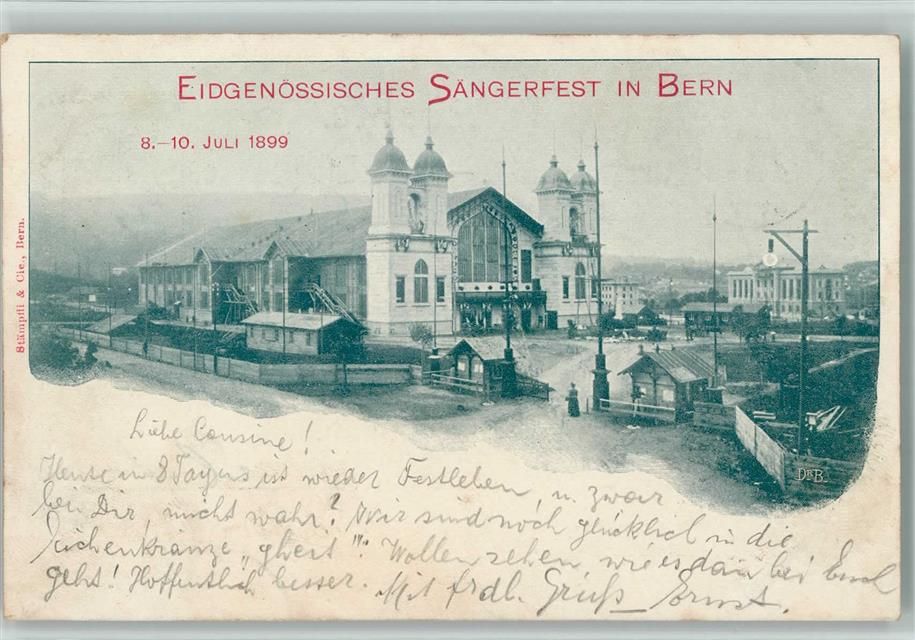 Eidgenössisches Sängerfest in Bern
8.–10. Juli 1899
Stämpfli & Cie., Bern.
DRB.
Liebe Cousine!
Heute in 8 Tagen ist wieder Festleben, u. zwar
bei Dir, nicht wahr? Wir sind noch glücklich in die
"gheit"!! Wollen sehen, wie es dan bei Euch
geht! Hoffentlich besser. Mit frdl. Gruß Ernst.